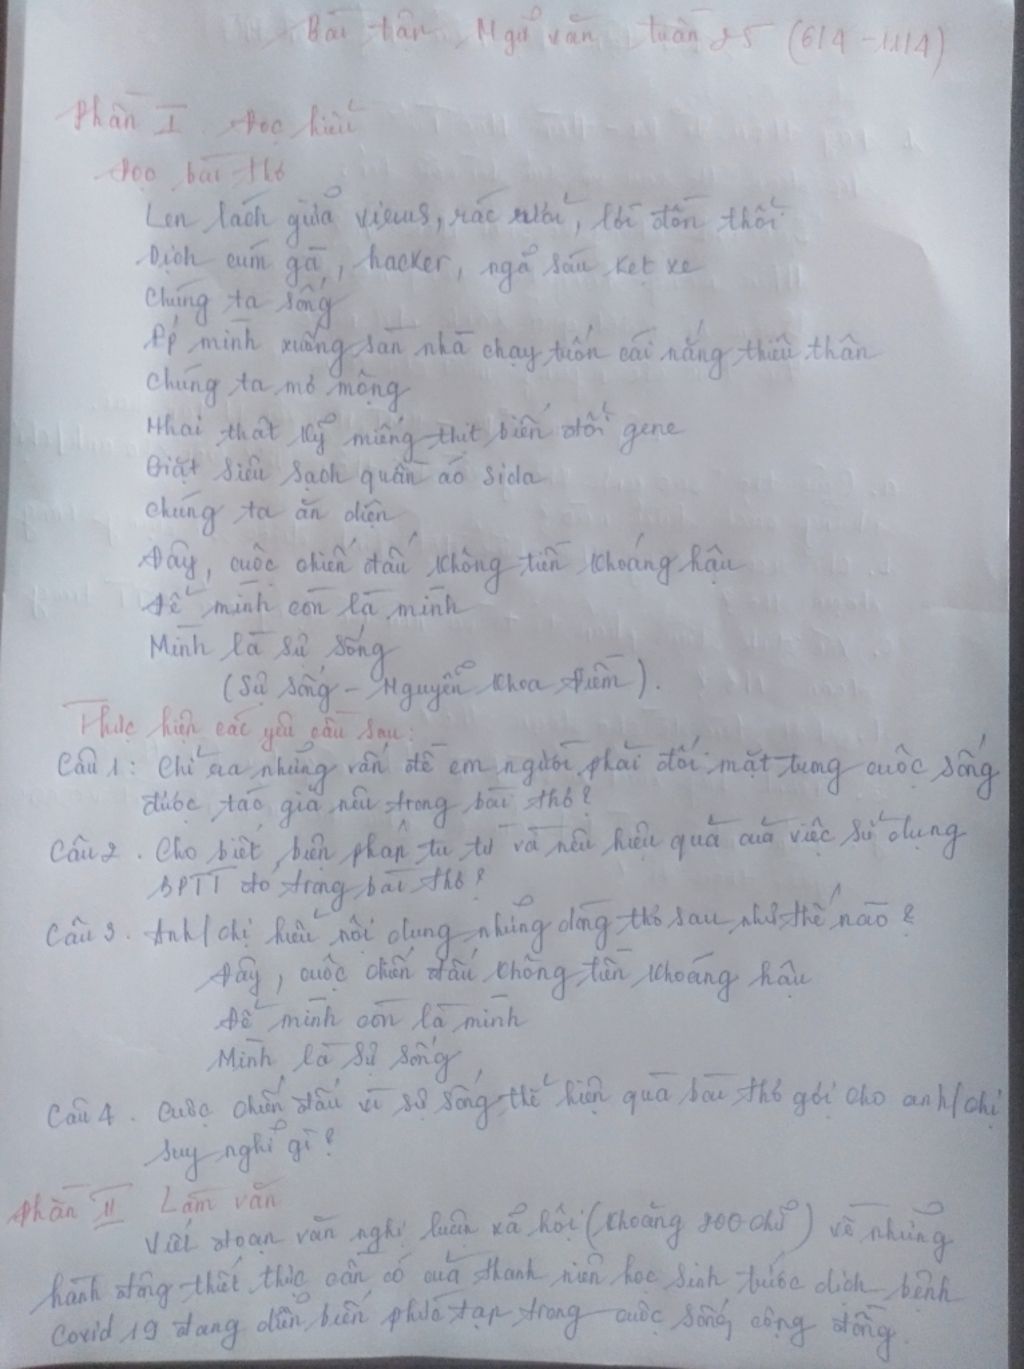 Bài tập Ngữ văn tuần 25 (6/4 - 11/4)
Phần I Đọc hiểu
Đọc bài thơ
Len lách giữa virus, rác rưởi, lời đồn thổi
Dịch cúm gà, hacker, ngã sáu kẹt xe
Chúng ta sống
Áp mình xuống sàn nhà chạy trốn cái nắng thiêu thân
Chúng ta mơ mộng
Nhai thật kỹ miếng thịt biến đổi gene
Giặt siêu sạch quần áo sida
Chúng ta ăn diện
Đây, cuộc chiến đấu không tiền khoáng hậu
Để mình còn là mình
Mình là sự sống
(Sự sống - Nguyễn Khoa Điềm).
Thực hiện các yêu cầu sau:
Câu 1: Chỉ ra những vấn đề em người phải đối mặt trong cuộc sống
được tác giả nêu trong bài thơ?
Câu 2. Cho biết biện pháp tu từ và nêu hiệu quả của việc sử dụng
BPTT đó trong bài thơ?
Câu 3. Anh/chị hiểu nội dung những dòng thơ sau như thế nào?
Đây, cuộc chiến đấu không tiền khoáng hậu
Để mình còn là mình
Mình là sự sống
Câu 4. Cuộc chiến đấu vì sự sống thể hiện qua bài thơ gợi cho anh/chị
suy nghĩ gì?
Phần II Làm văn
Viết đoạn văn nghị luận xã hội (khoảng 200 chữ) về những
hành động thiết thực cần có của thanh niên học sinh trước dịch bệnh
Covid 19 đang diễn biến phức tạp trong cuộc sống cộng đồng.